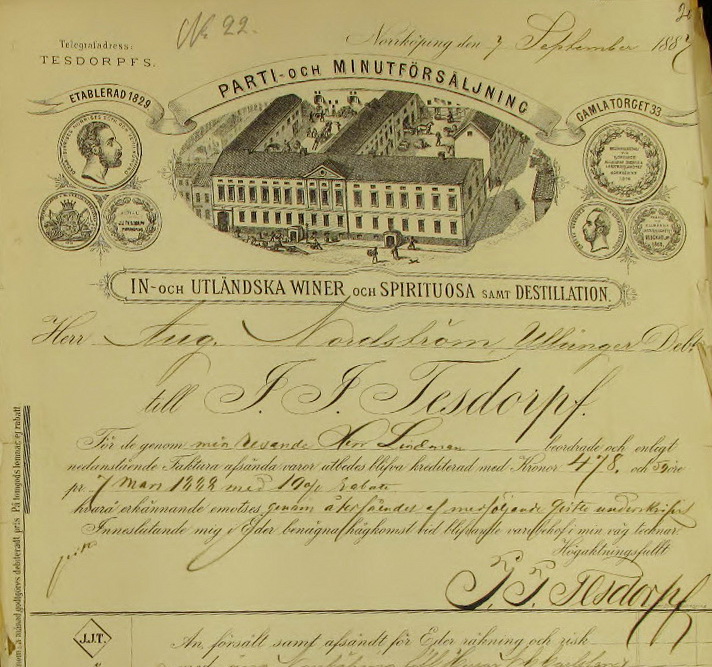 № 22.
Telegrafadress:
TESDORPFS.
Norrköping den 7 September 1887
ETABLERAD 1829
PARTI- OCH MINUTFÖRSÄLJNING
GAMLA TORGET 33
IN- OCH UTLÄNDSKA WINER OCH SPIRITUOSA SAMT DESTILLATION.
Herr Aug. Nordström, Ullånger Debt
till J. J. Tesdorpf.
För de genom min resande Herr Lindman beordrade och enligt
nedanstående Faktura afsända varor utbedes blifva krediterad med Kronor 478, och 50 öre
pr 7 Mars 1888 med 1% rabatt
hvarå erkännande emotses genom återsändet af medföljande underskrifvet
Inneslutande mig i Eder benägna hågkomst vid blifvande varubehof i min väg tecknar
Högaktningsfullt
J. J. Tesdorpf
J.J.T.
An försålt samt afsändt för Eder räkning och risk
godtgöres debiteradt pris. På tomgods lemnas ej rabatt.